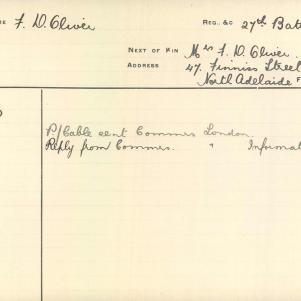 ME F. D. Oliver REG., &C 27th Batt
NEXT OF KIN Mrs F. D. Oliver.
ADDRESS 47. Finniss Street
North Adelaide
P/Cable sent Commrs London.
Reply from Commrs. " Informat